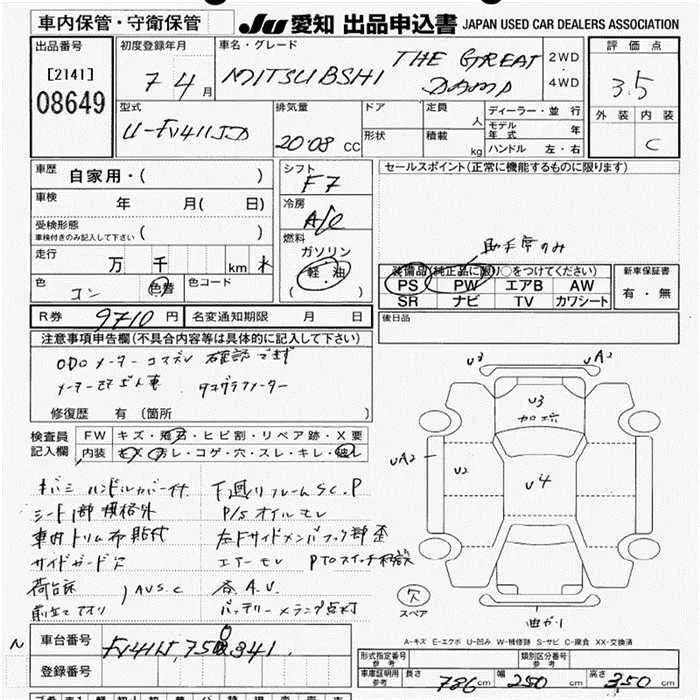 車内保管・守衛保管
JU 愛知 出品申込書 JAPAN USED CAR DEALERS ASSOCIATION
出品番号
[2141]
08649
初度登録年月
7 4 月
車名・グレード
MITSUBSHI THE GREAT
DAMP
2WD
4WD
評価点
3.5
外装 内装
C
型式
U-FV411JD
排気量
20.08 CC
ドア
形状
定員
人
積載
kg
ディーラー・並 行
モデル年式 年
ハンドル 左・右
車歴
自家用・( )
車検
年 月( 日)
受検形態
車検付きのみ記入して下さい ( )
走行
万 千 km
色
コン
色替
色コード
シフト
F7
冷房
A/C
燃料
ガソリン
軽・油
( )
セールスポイント(正常に機能するものに限ります)
助手席のみ
装備品(純正品に限り○をつけてください)
PS PW エアB AW
SR ナビ TV カワシート
新車保証書
有・無
R券 9710 円
名変通知期限 月 日
後日品
注意事項申告欄(不具合内容等は具体的に記入して下さい)
ODOメーター コスズレ 確認できず
タコグラフメーター
修復歴 有(箇所 )
検査員
記入欄
FW キズ・飛石・ヒビ割・リペア跡・X要
内装 キズ・汚レ・コゲ・穴・スレ・キレ・破レ
ハンドルカバー付
下廻りフレームSC.P
シート1部規格外
P/Sオイルモレ
車内トリム布貼付
左Fサイドメンバフック部歪
サイドガード欠
エアーモレ
荷台床
AUS.C
各A.U.
バッテリーメランプ点灯
U3
UA2
U3
加工痕
UA2
U2
U4
欠
スペア
曲がり
A-キズ E-エクボ U-凹み W-補修跡 S-サビ C-腐食 XX-交換済
車台番号
登録番号
形式指定番号
参考
類別区分番号
参考
車庫証明用
参考
長さ 786 cm
幅 250 cm
高さ 350 cm